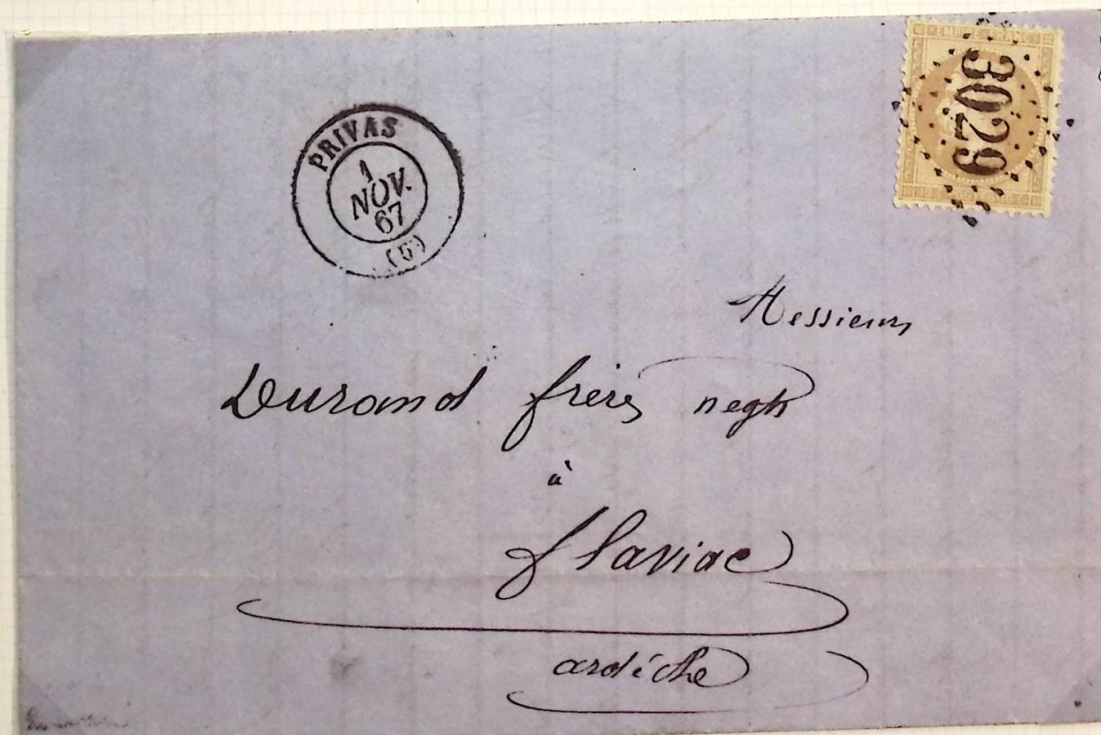 3029
PRIVAS
1
NOV.
67
(6)
Messieurs
Durand frères negts
à
flaviac
ardèche